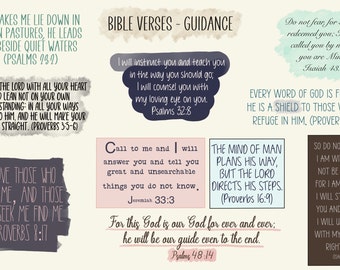 AKES ME LIE DOWN IN
N PASTURES, HE LEADS
ESIDE QUIET WATERS
(PSALMS 23:2)
BIBLE VERSES - GUIDANCE
Do not fear, for I
redeemed you; I
called you by n
you are Min
Isaiah 43:
I will instruct you and teach you
in the way you should go;
I will counsel you with
my loving eye on you.
Psalms 32:8
THE LORD WITH ALL YOUR HEART
D LEAN NOT ON YOUR OWN
STANDING; IN ALL YOUR WAYS
TO HIM, AND HE WILL MAKE YOUR
STRAIGHT. (PROVERBS 3:5-6)
EVERY WORD OF GOD IS F
HE IS A SHIELD TO THOSE
REFUGE IN HIM. (PROVERB
Call to me and I will
answer you and tell you
great and unsearchable
things you do not know.
Jeremiah 33:3
THE MIND OF MAN
PLANS HIS WAY,
BUT THE LORD
DIRECTS HIS STEPS.
(Proverbs 16:9)
OVE THOSE WHO
ME, AND THOSE
EEK ME FIND ME
PROVERBS 8:17
SO DO NO
I AM WI
NOT BE
FOR I AM
I WILL S
YOU AN
I WILL U
WITH MY
RIGH
For this God is our God for ever and ever;
he will be our guide even to the end.
Psalms 48:14